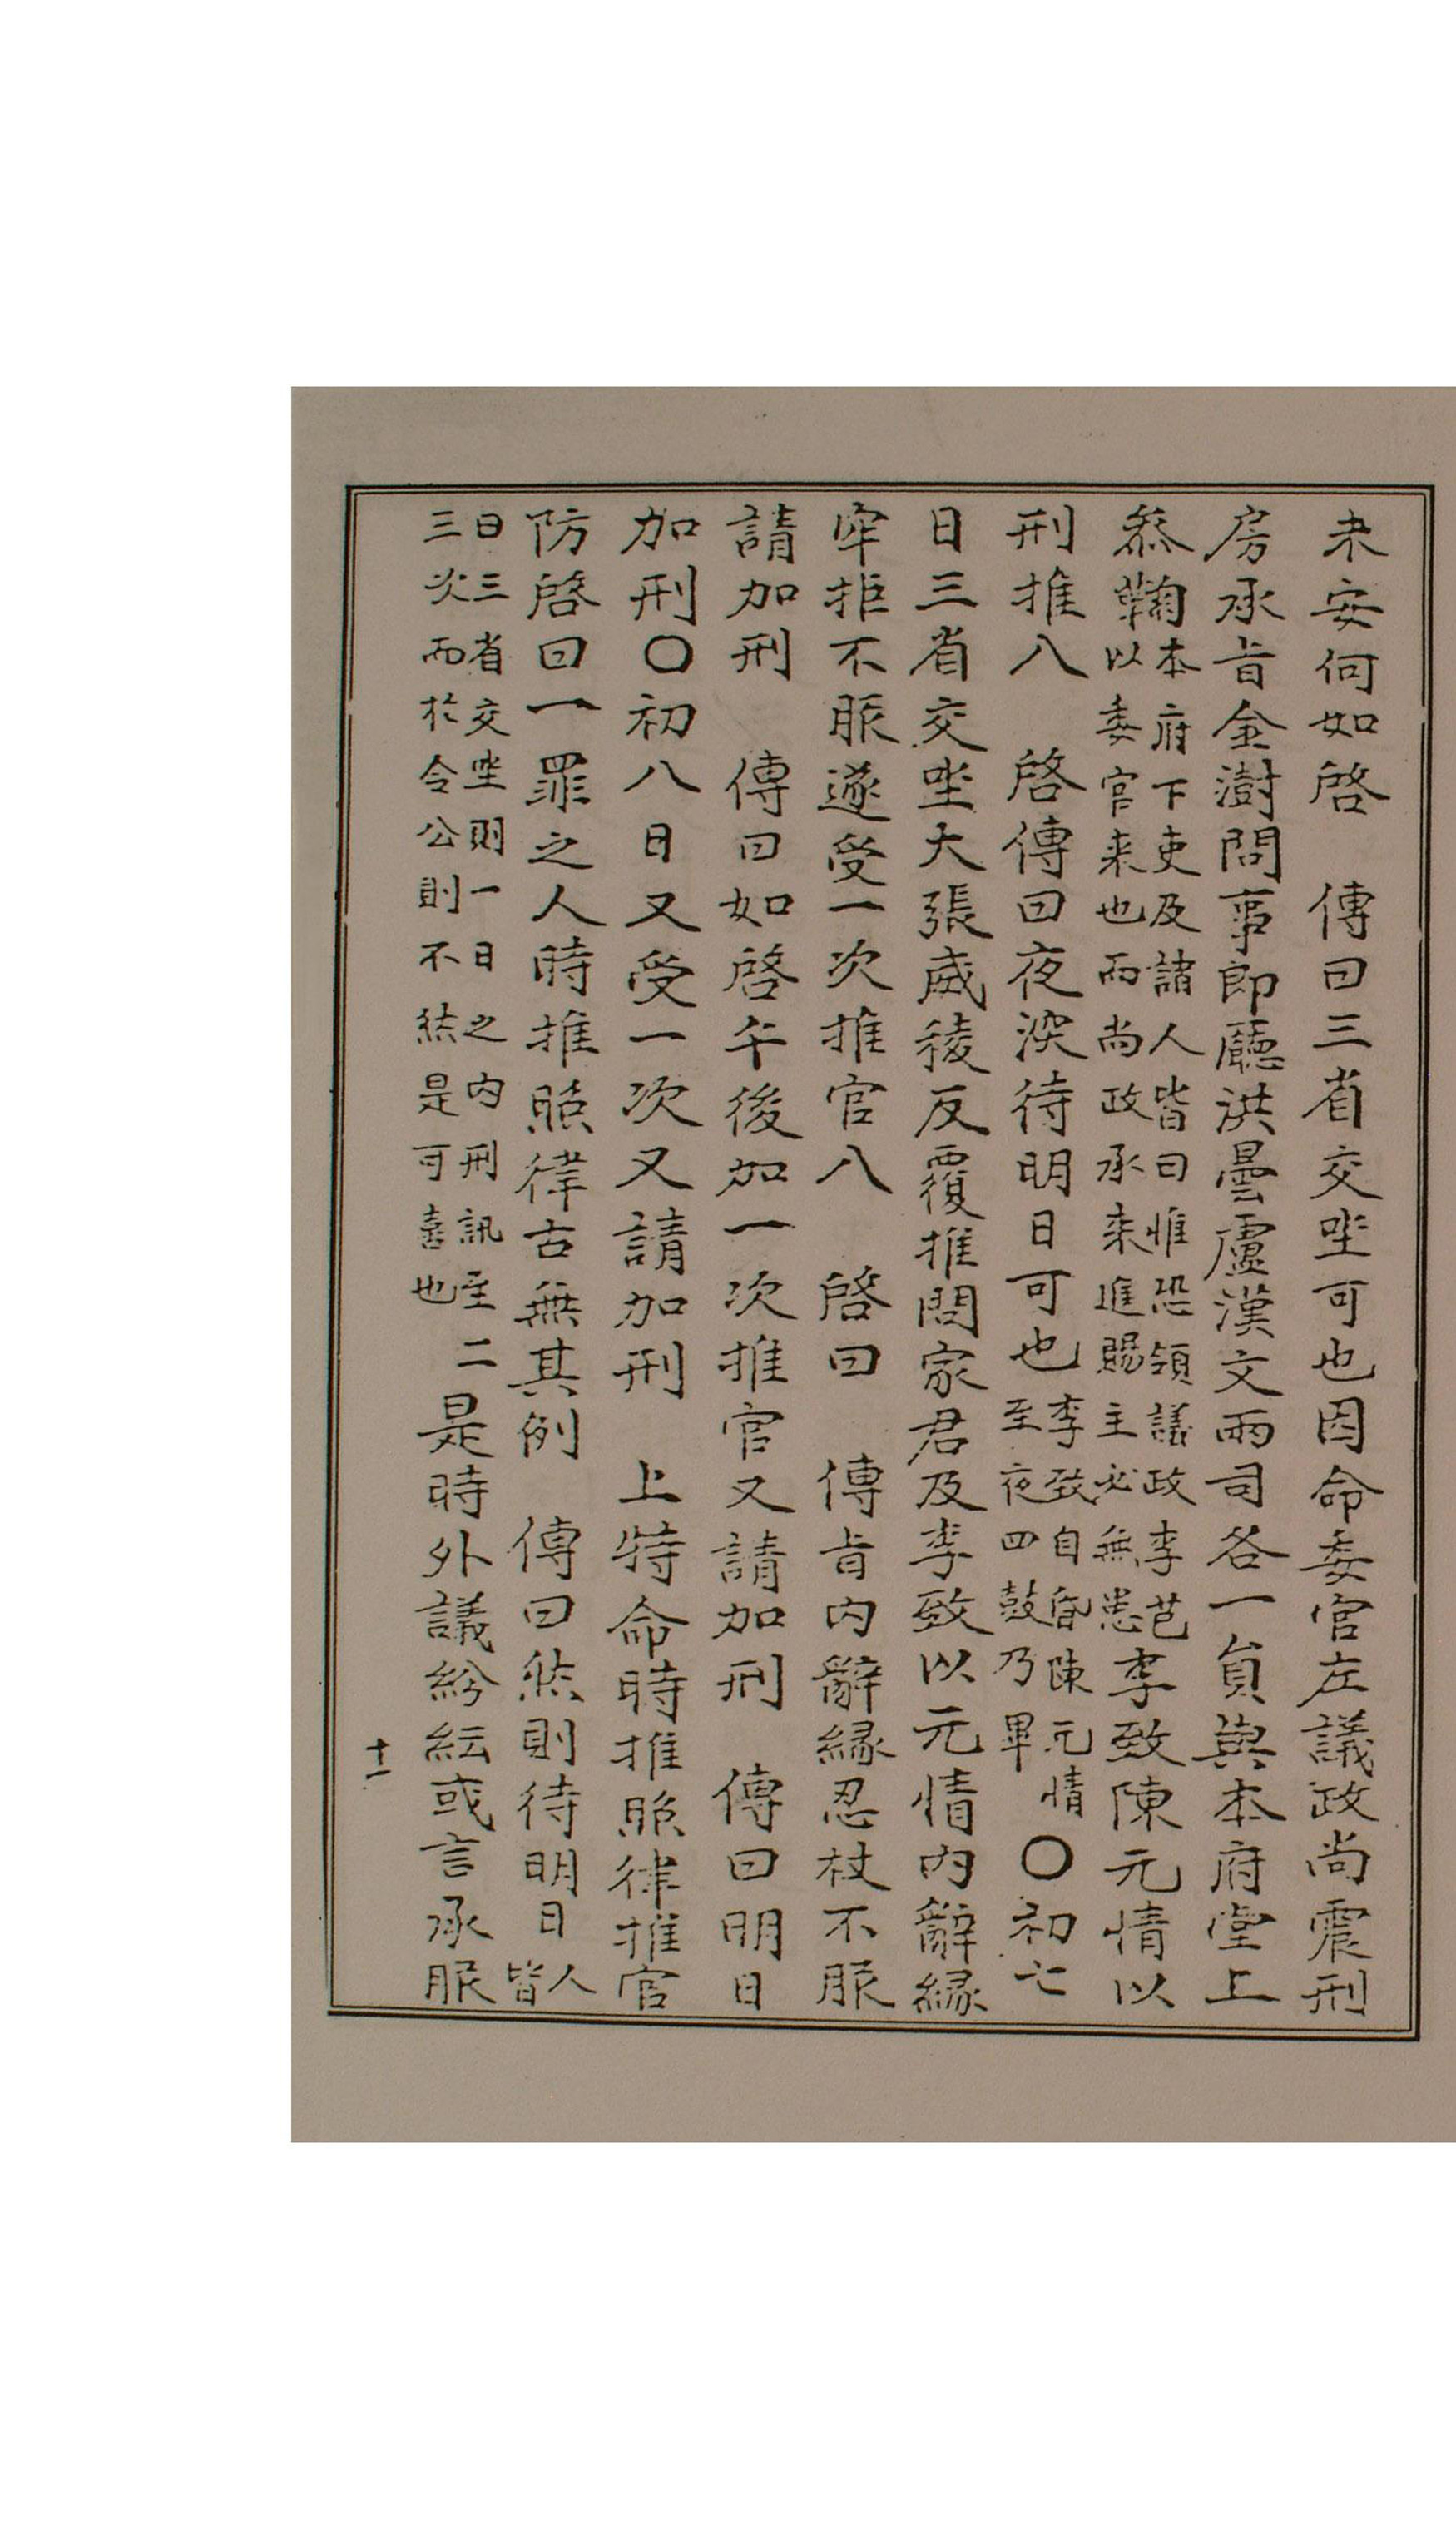 未安何如啓　傳曰三省交坐可也因命委官左議政尚震刑
房承旨金澍問事郎廳洪曇盧漢文兩司各一員與本府堂上
叅鞠本府下吏及諸人皆曰惟恐領議政李芑以委官来也而尚政承来進賜主必無恙李致陳元情以
刑推入　啓傳曰夜深待明日可也李致自昏陳元情至夜四鼓乃畢〇初七
日三省交坐大張威稜反覆推問家君及李致以元情内辭緣
牢拒不服遂受一次推官入　啓曰　傳旨内辭緣忍杖不服
請加刑　傳曰如啓午後加一次推官又請加刑　傳曰明日
加刑〇初八日又受一次又請加刑　上特命時推照律推官
防啓曰一罪之人時推照律古無其例　傳曰然則待明日人皆
曰三省交坐則一日之内刑訊至二三次而於令公則不然是可喜也是時外議紛紜或言承服
十一